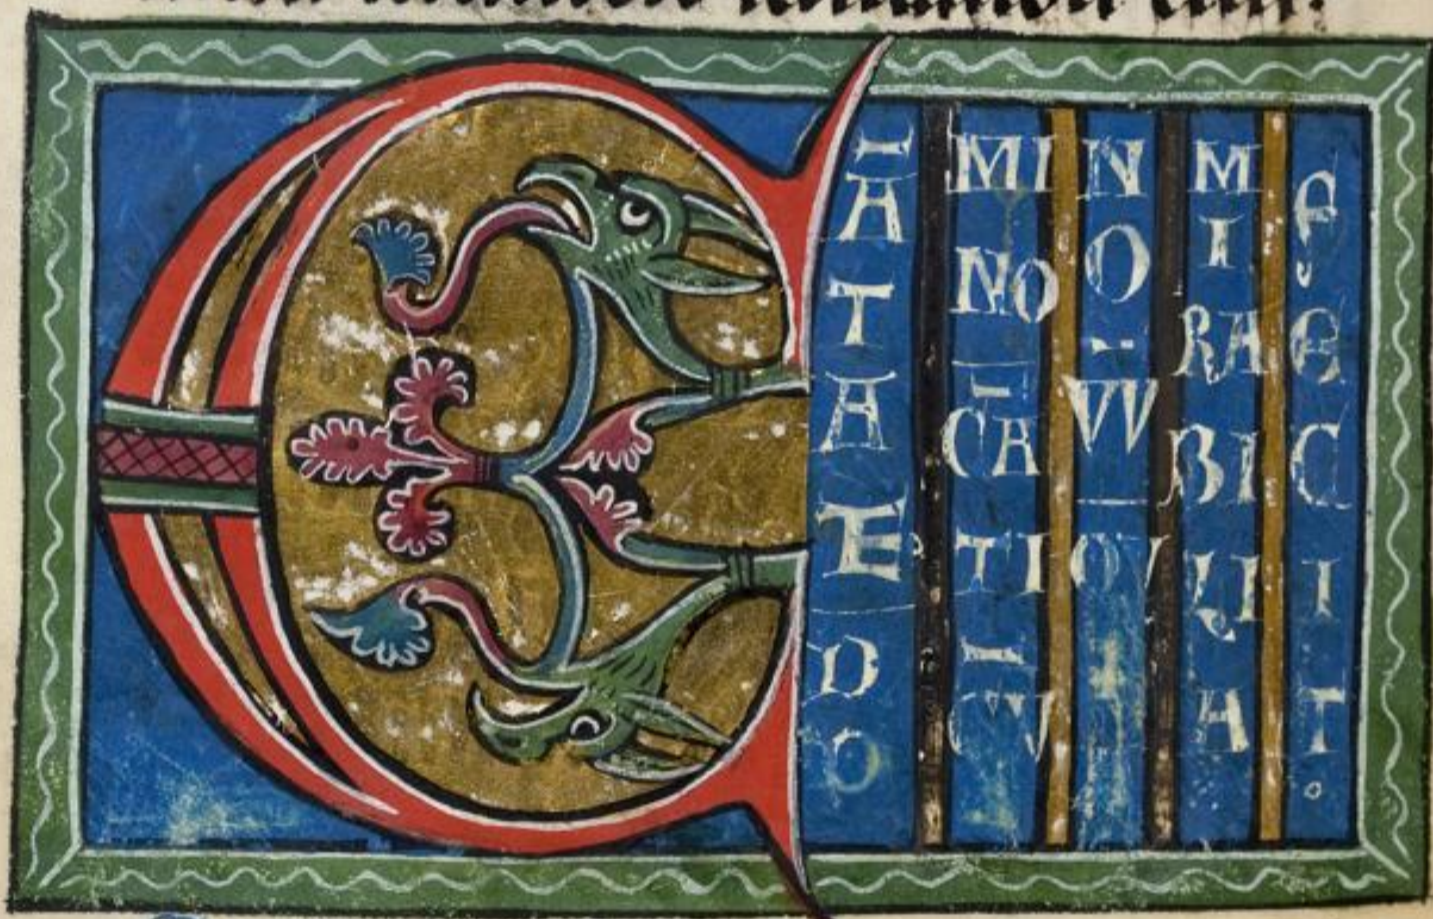 CĀTATE DO
MINO CĀTICV̄
NOVV̄ QV̄
MIRABILIA
FECIT.